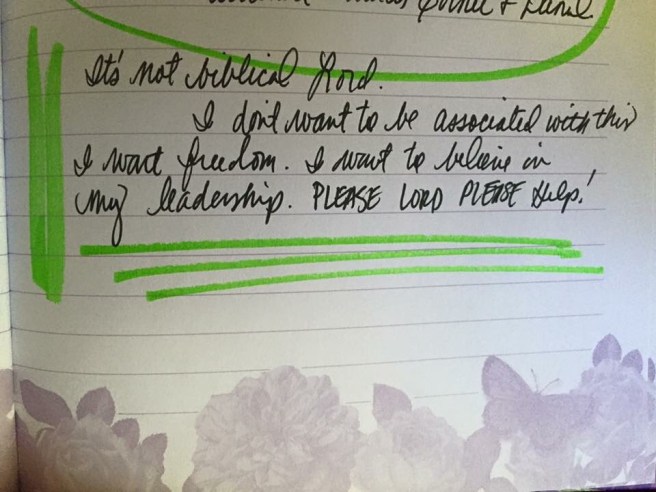 It's not biblical Lord.
I don't want to be associated with this
I want freedom. I want to believe in
my leadership. PLEASE LORD PLEASE Help!